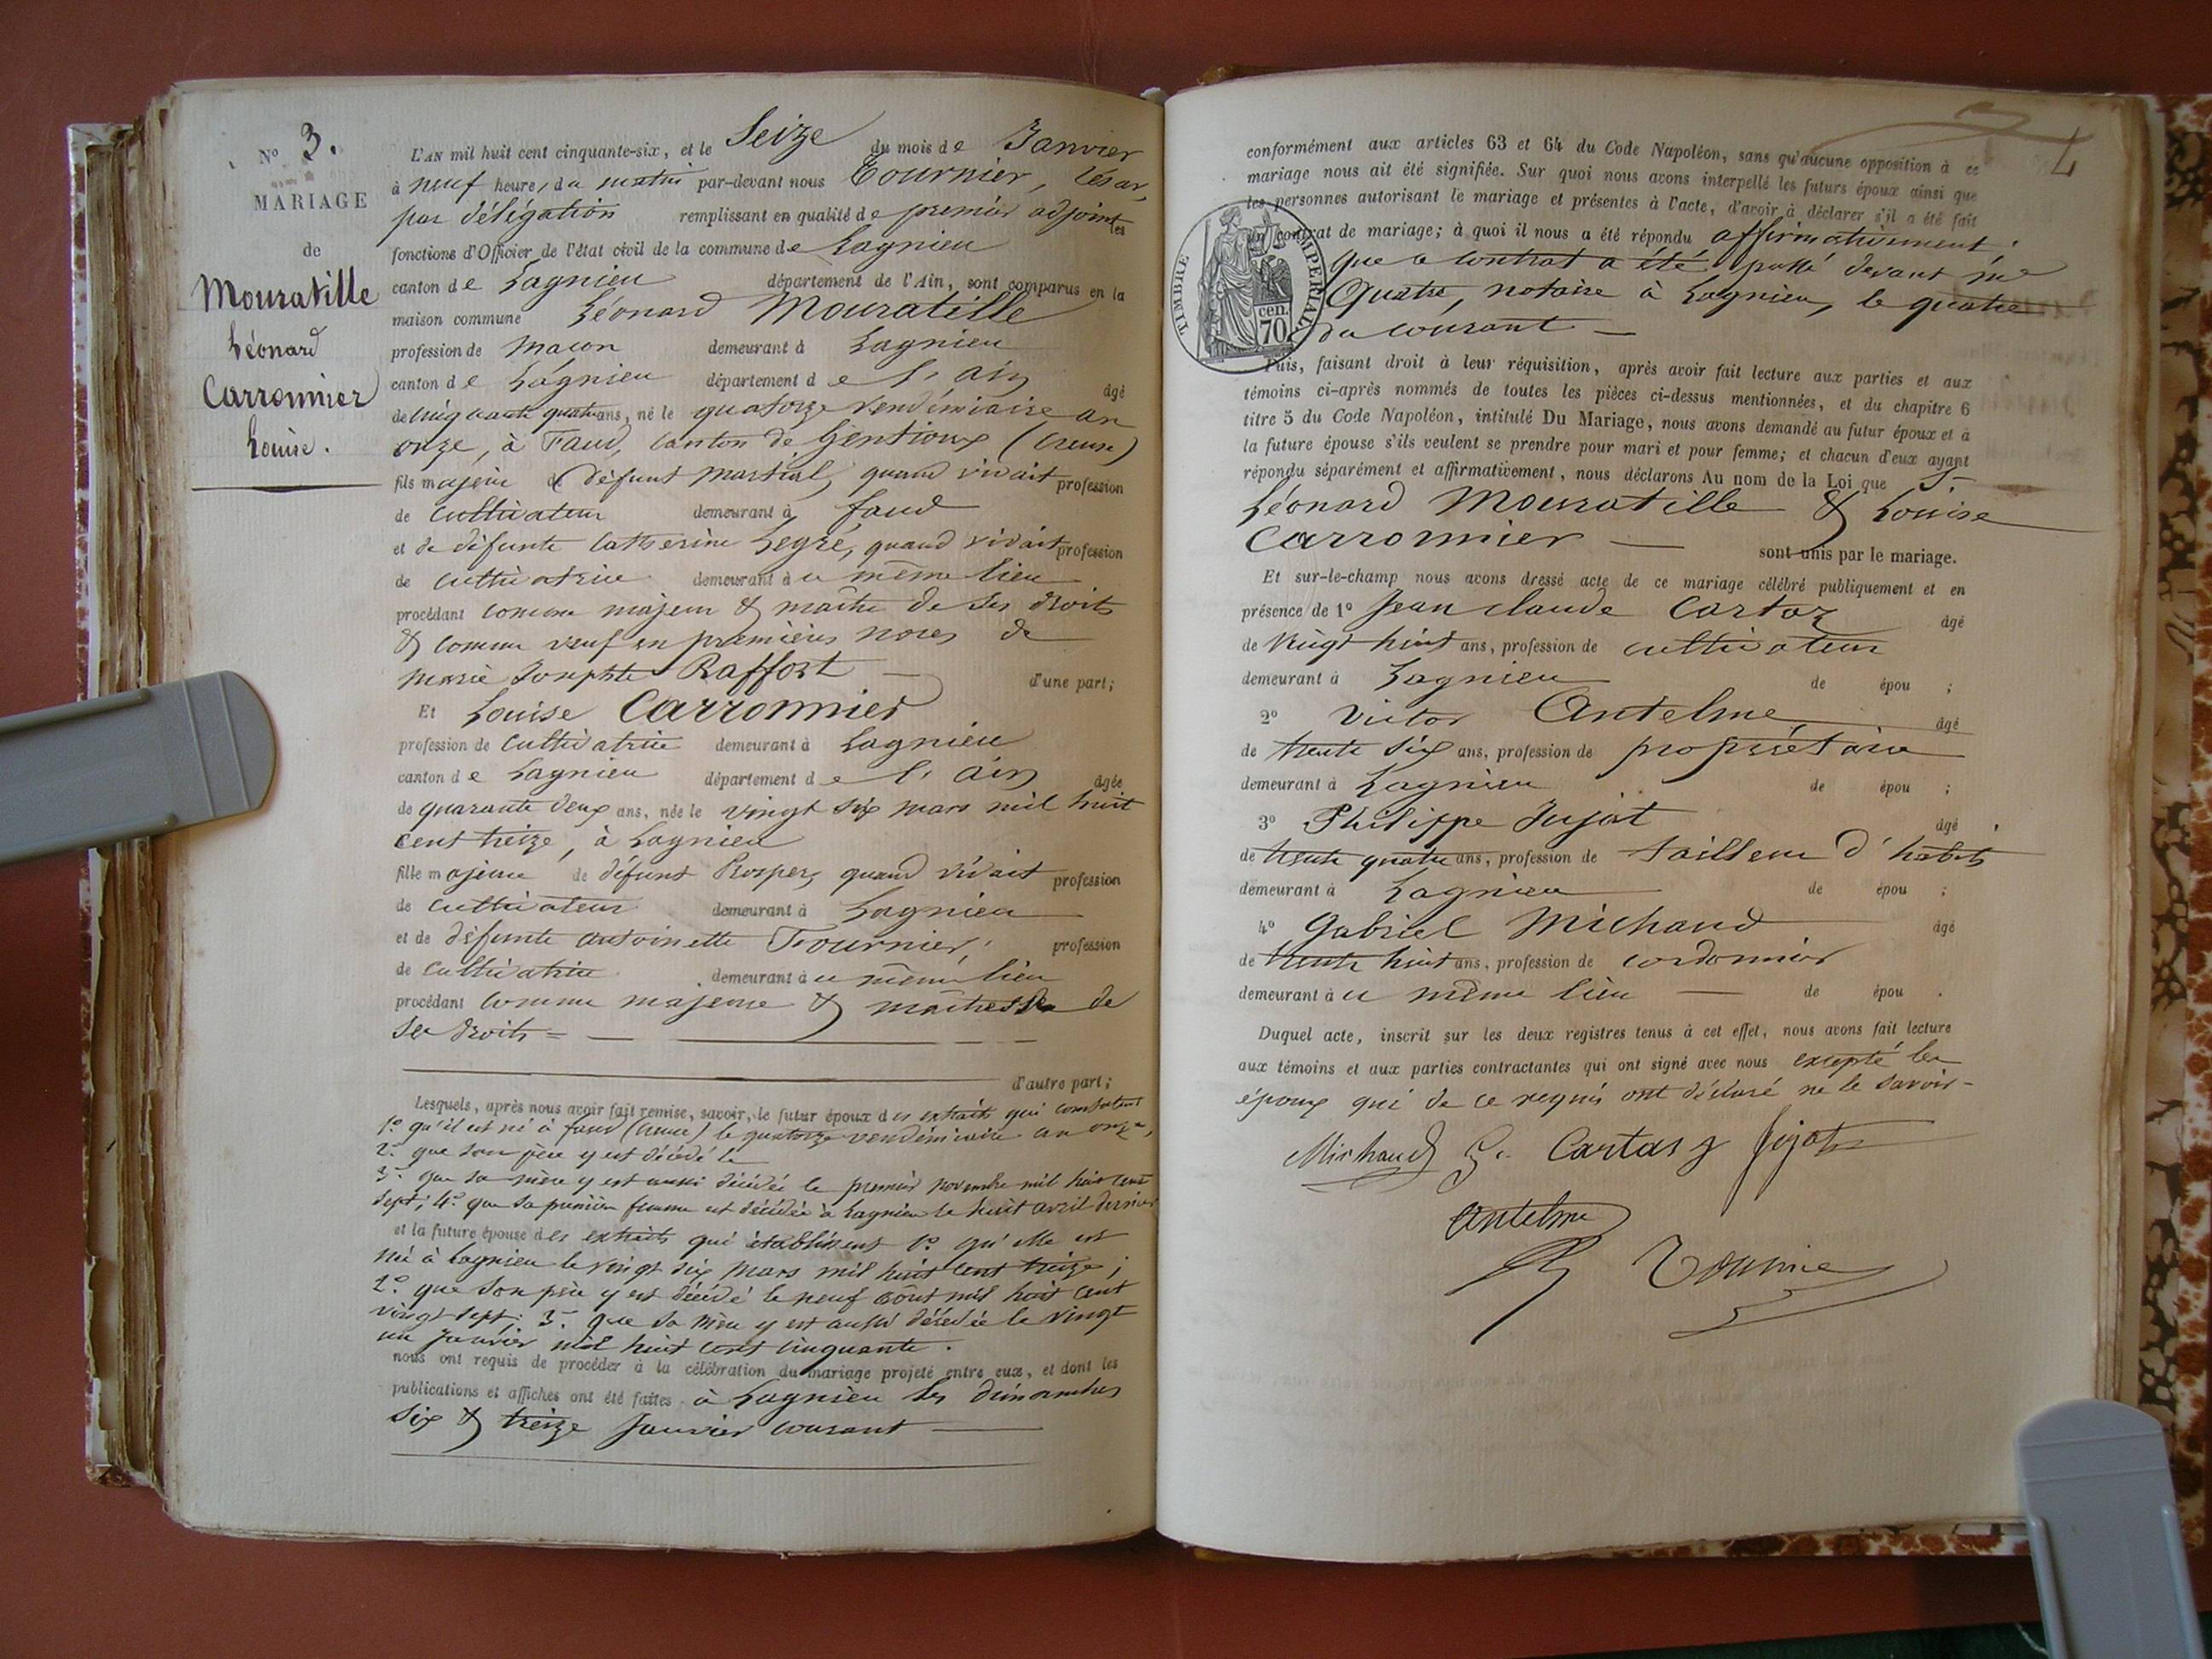 N° 3.
MARIAGE
de
Mouratille
Léonard
Carronnier
Louise.
L'AN mil huit cent cinquante-six, et le Seize du mois de Janvier
à neuf heures du matin par-devant nous Tournier, César,
par délégation remplissant en qualité de premier adjoint les
fonctions d'Officier de l'état civil de la commune de Lagnieu
canton de Lagnieu département de l'Ain, sont comparus en la
maison commune Léonard Mouratille
profession de maçon demeurant à Lagnieu
canton de Lagnieu département de l'Ain âgé
de cinquante quatre ans, né le quatorze vendémiaire an
onze, à Faud, canton de Gentioux (Creuse)
fils majeur de défunt Martial, quand vivait profession
de cultivateur demeurant à faud
et de défunte Catherine Legré, quand vivait profession
de cultivatrice demeurant à ce même lieu
procédant comme majeur & maître de ses droits
& comme veuf en premières noces de
Marie Josephte Raffort d'une part;
Et Louise Carronnier
profession de cultivatrice demeurant à Lagnieu
canton de Lagnieu département de l'Ain âgée
de quarante deux ans, née le vingt six mars mil huit
cent treize, à Lagnieu
fille majeure de défunt Prosper, quand vivait profession
de cultivateur demeurant à Lagnieu
et de défunte antoinette Tournier, profession
de cultivatrice demeurant à ce même lieu
procédant comme majeure & maîtresse de
ses droits
d'autre part;
Lesquels, après nous avoir fait remise, savoir, le futur époux des extraits qui constatent
1° qu'il est né à faud (Creuse) le quatorze vendémiaire an onze,
2° que son père y est décédé le
3° que sa mère y est aussi décédée le premier novembre mil huit cent
sept; 4° que sa première femme est décédée à Lagnieu le huit avril dernier
et la future épouse des extraits qui établissent 1° qu'elle est
née à Lagnieu le vingt six mars mil huit cent treize;
2° que son père y est décédé le neuf août mil huit cent
vingt sept; 3° que sa mère y est aussi décédée le vingt
un janvier mil huit cent cinquante.
nous ont requis de procéder à la célébration du mariage projeté entre eux, et dont les
publications et affiches ont été faites à Lagnieu les dimanches
six & treize janvier courant
4
conformément aux articles 63 et 64 du Code Napoléon, sans qu'aucune opposition à ce
mariage nous ait été signifiée. Sur quoi nous avons interpellé les futurs époux ainsi que
les personnes autorisant le mariage et présentes à l'acte, d'avoir à déclarer s'il a été fait
un contrat de mariage; à quoi il nous a été répondu affirmativement
que ce contrat a été passé devant me
Quatre, notaire à Lagnieu, le quatre
du courant
TIMBRE IMPERIAL
cen.
70
Puis, faisant droit à leur réquisition, après avoir fait lecture aux parties et aux
témoins ci-après nommés de toutes les pièces ci-dessus mentionnées, et du chapitre 6
titre 5 du Code Napoléon, intitulé Du Mariage, nous avons demandé au futur époux et à
la future épouse s'ils veulent se prendre pour mari et pour femme; et chacun d'eux ayant
répondu séparément et affirmativement, nous déclarons Au nom de la Loi que
Léonard Mouratille & Louise
Carronnier sont unis par le mariage.
Et sur-le-champ nous avons dressé acte de ce mariage célébré publiquement et en
présence de 1° Jean Claude Cartaz âgé
de vingt huit ans, profession de cultivateur
demeurant à Lagnieu de épou ;
2° Victor Antelme, âgé
de trente six ans, profession de propriétaire
demeurant à Lagnieu de épou ;
3° Philippe Jujat âgé
de trente quatre ans, profession de tailleur d'habits
demeurant à Lagnieu de épou ;
4° Gabriel Michaud âgé
de trente huit ans, profession de cordonnier
demeurant à ce même lieu de épou .
Duquel acte, inscrit sur les deux registres tenus à cet effet, nous avons fait lecture
aux témoins et aux parties contractantes qui ont signé avec nous excepté les
époux qui de ce requis ont déclaré ne le savoir
Michaud G. Cartaz Jujat
Antelme
Tournie